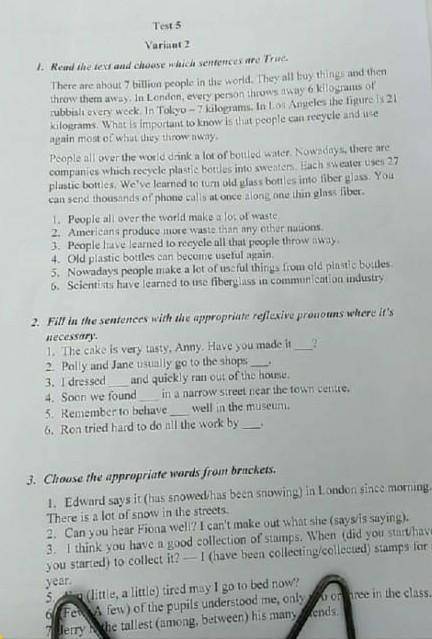 Test 5
Variant 2
1. Read the text and choose which sentences are True.
There are about 7 billion people in the world. They all buy things and then
throw them away. In London, every person throws away 6 kilograms of
rubbish every week. In Tokyo – 7 kilograms. In Los Angeles the figure is 21
kilograms. What is important to know is that people can recycle and use
again most of what they throw away.
People all over the world drink a lot of bottled water. Nowadays, there are
companies which recycle plastic bottles into sweaters. Each sweater uses 27
plastic bottles. We've learned to turn old glass bottles into fiber glass. You
can send thousands of phone calls at once along one thin glass fiber.
1. People all over the world make a lot of waste.
2. Americans produce more waste than any other nations.
3. People have learned to recycle all that people throw away.
4. Old plastic bottles can become useful again.
5. Nowadays people make a lot of useful things from old plastic bottles.
6. Scientists have learned to use fiberglass in communication industry
2. Fill in the sentences with the appropriate reflexive pronouns where it's
necessary.
1. The cake is very tasty, Anny. Have you made it ___?
2. Polly and Jane usually go to the shops ___.
3. I dressed ___ and quickly ran out of the house.
4. Soon we found ___ in a narrow street near the town centre.
5. Remember to behave ___ well in the museum.
6. Ron tried hard to do all the work by ___.
3. Choose the appropriate words from brackets.
1. Edward says it (has snowed/has been snowing) in London since morning.
There is a lot of snow in the streets.
2. Can you hear Fiona well? I can't make out what she (says/is saying).
3. I think you have a good collection of stamps. When (did you start/have
you started) to collect it? — I (have been collecting/collected) stamps for
year.
5. (little, a little) tired may I go to bed now?
6. Few A few) of the pupils understood me, only or three in the class.
7 Jerry the tallest (among, between) his many